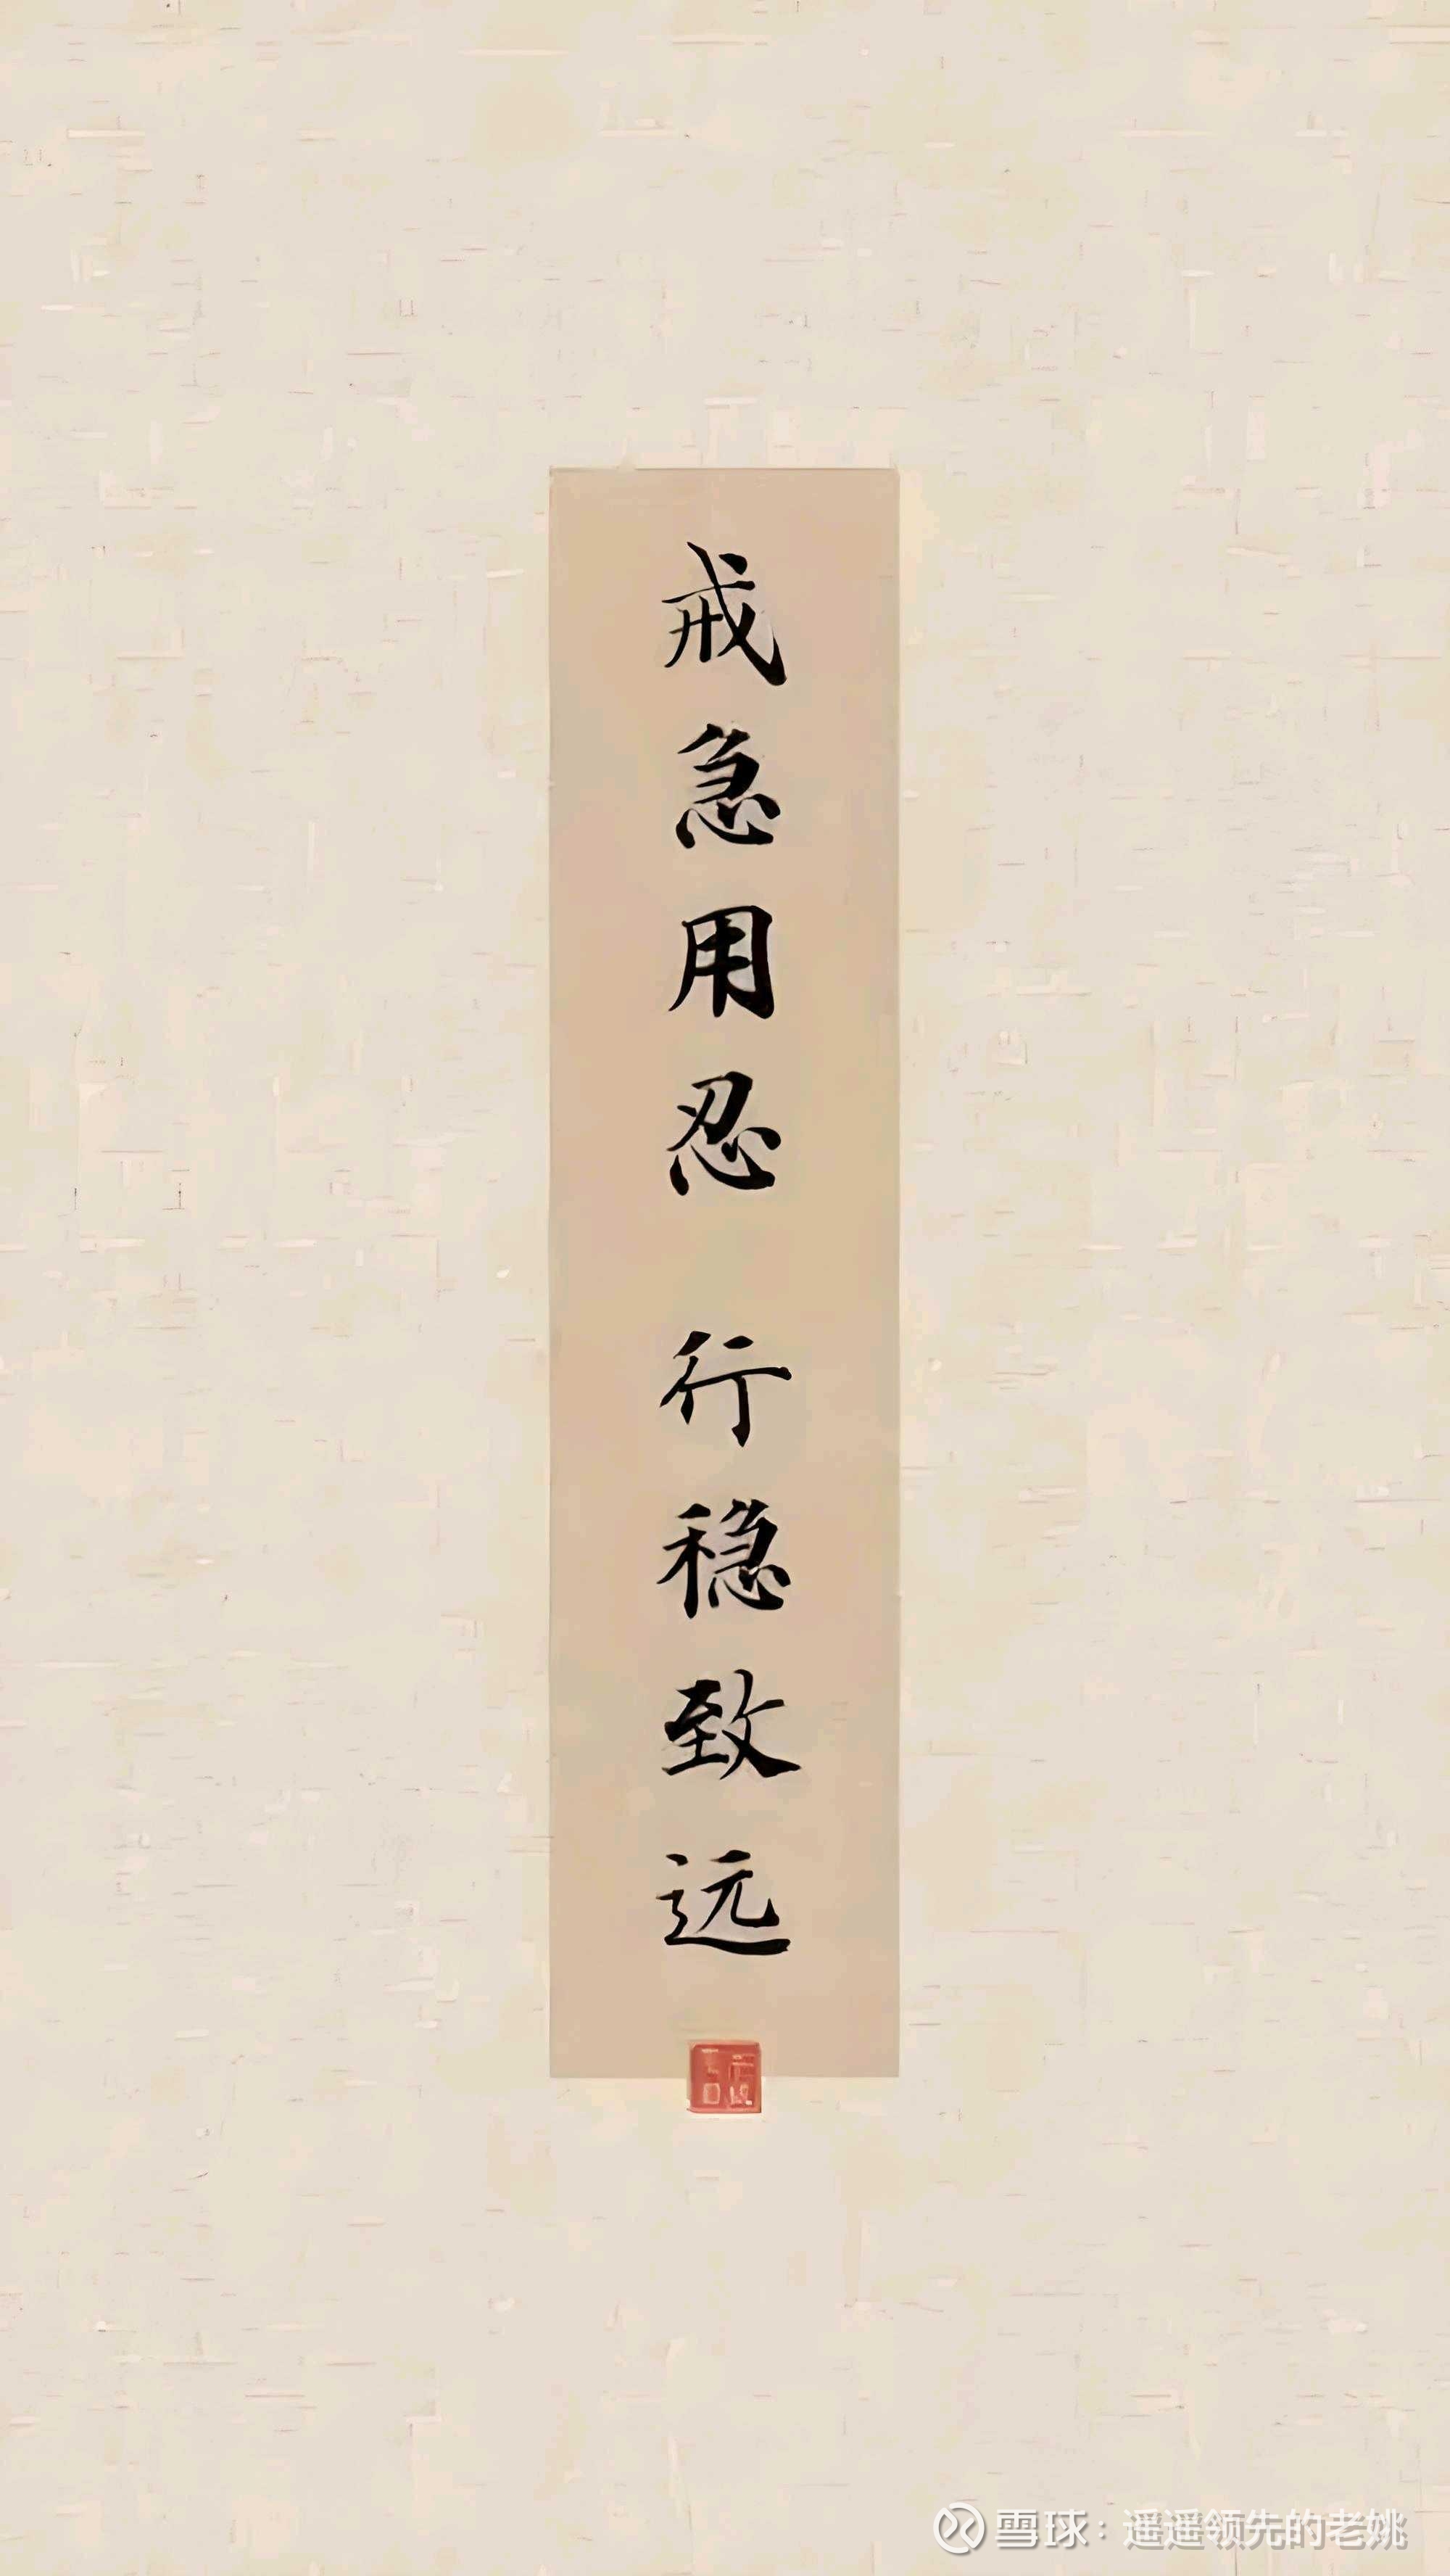 戒急用忍 行稳致远
雪球：遥遥领先的老姚